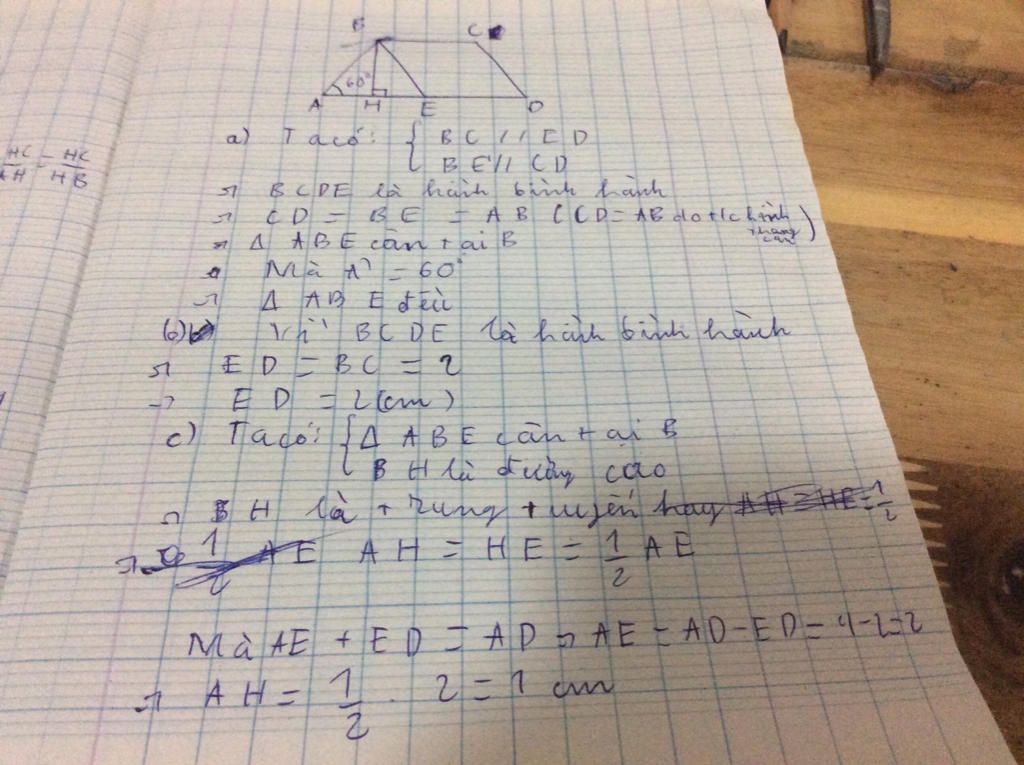 B C
60°
A H E D
HC/AH = HC/HB
a) Ta có: { BC // ED
BE // CD
=> BCDE là hành bình hành
=> CD = BE = AB (CD = AB do t/c hình thang cân)
=> Δ ABE cân tại B
Mà A^ = 60°
=> Δ ABE đều
b) Vì BCDE là hành bình hành
=> ED = BC = 2
=> ED = 2(cm)
c) Ta có: { Δ ABE cân tại B
BH là đường cao
=> BH là trung tuyến hay
=> AH = HE = 1/2 AE
Mà AE + ED = AD => AE = AD - ED = 4 - 2 = 2
=> AH = 1/2 . 2 = 1 cm